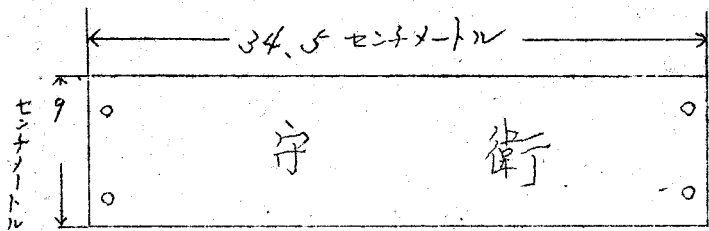 34.5センチメートル
9センチメートル
守衛